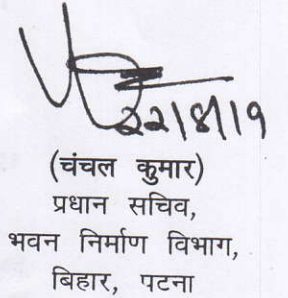 22/8/19
(चंचल कुमार)
प्रधान सचिव,
भवन निर्माण विभाग,
बिहार, पटना